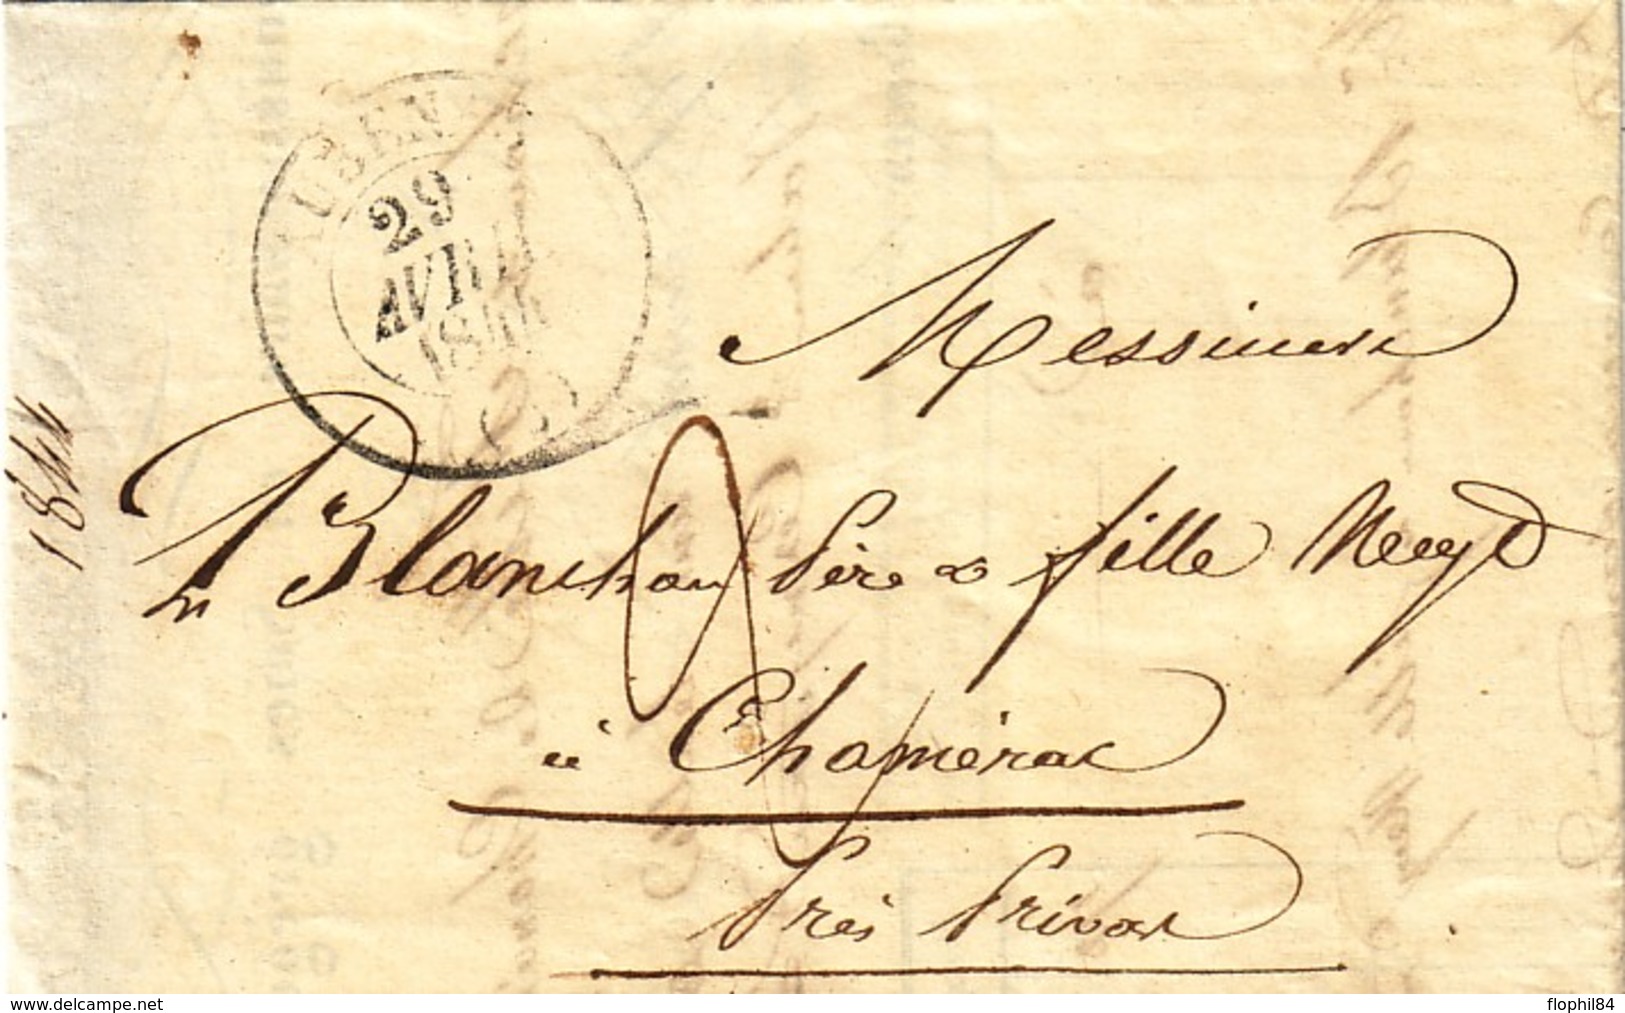 AUBENAS
29
AVRIL
1844
(6)
1844
Messieurs
Blanchon Père & fille Neg^ts
à Chomérac
Près Privas
www.delcampe.net
flophil84